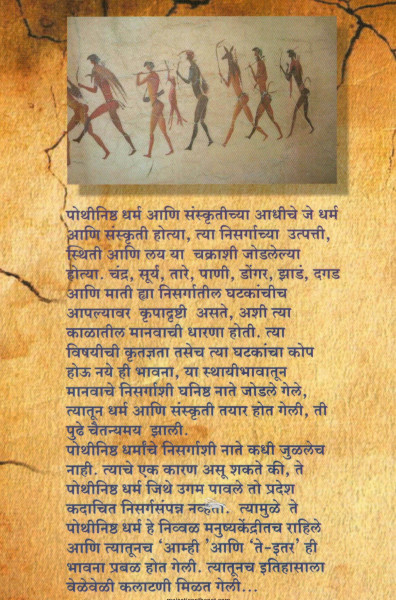 पोथीनिष्ठ धर्म आणि संस्कृतीच्या आधीचे जे धर्म
आणि संस्कृती होत्या, त्या निसर्गाच्या उत्पत्ती,
स्थिती आणि लय या चक्राशी जोडलेल्या
होत्या. चंद्र, सूर्य, तारे, पाणी, डोंगर, झाडं, दगड
आणि माती ह्या निसर्गातील घटकांचीच
आपल्यावर कृपादृष्टी असते, अशी त्या
काळातील मानवाची धारणा होती. त्या
विषयीची कृतज्ञता तसेच त्या घटकांचा कोप
होऊ नये ही भावना, या स्थायीभावातून
मानवाचे निसर्गाशी घनिष्ठ नाते जोडले गेले,
त्यातून धर्म आणि संस्कृती तयार होत गेली, ती
पुढे चैतन्यमय झाली.
पोथीनिष्ठ धर्माचे निसर्गाशी नाते कधी जुळलेच
नाही. त्याचे एक कारण असू शकते की, ते
पोथीनिष्ठ धर्म जिथे उगम पावले तो प्रदेश
कदाचित निसर्गसंपन्न नव्हता. त्यामुळे ते
पोथीनिष्ठ धर्म हे निव्वळ मनुष्यकेंद्रीतच राहिले
आणि त्यातूनच ‘आम्ही ’आणि ‘ते-इतर’ ही
भावना प्रबळ होत गेली. त्यातूनच इतिहासाला
वेळेवेळी कलाटणी मिळत गेली...